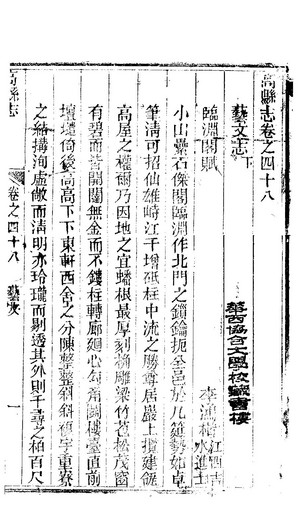 高縣志卷之四十八
藝文志下
臨淵閣賦
李鴻楷 江西吉水進士
小山疊石傑閣臨淵作北門之鎖鑰扼全邑於几筵勢如卓
筆淸可招仙雄峙江干增砥柱中流之勝尊居巖上攬建瓴
高屋之權爾乃因地之宜蟠根最厚刻桷雕梁竹苞松茂窗
有碧而皆開闥無金而不鏤柱轉廊廻心勾角鬭樓臺直前
壇壝倚後高高下下東軒西舍之分陳整整斜斜複宇重寮
之結搆洵虛敞而淸明亦玲瓏而剔透其外則千尋之柏百尺
華西協合大學校藏書樓
高縣志
卷之四十八
藝文
一